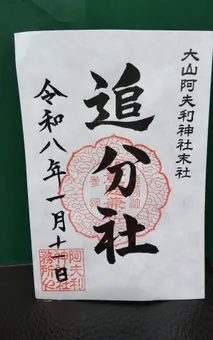 大山阿夫利神社末社
追分社
令和八年一月十一日
阿夫利
神社社
務所印